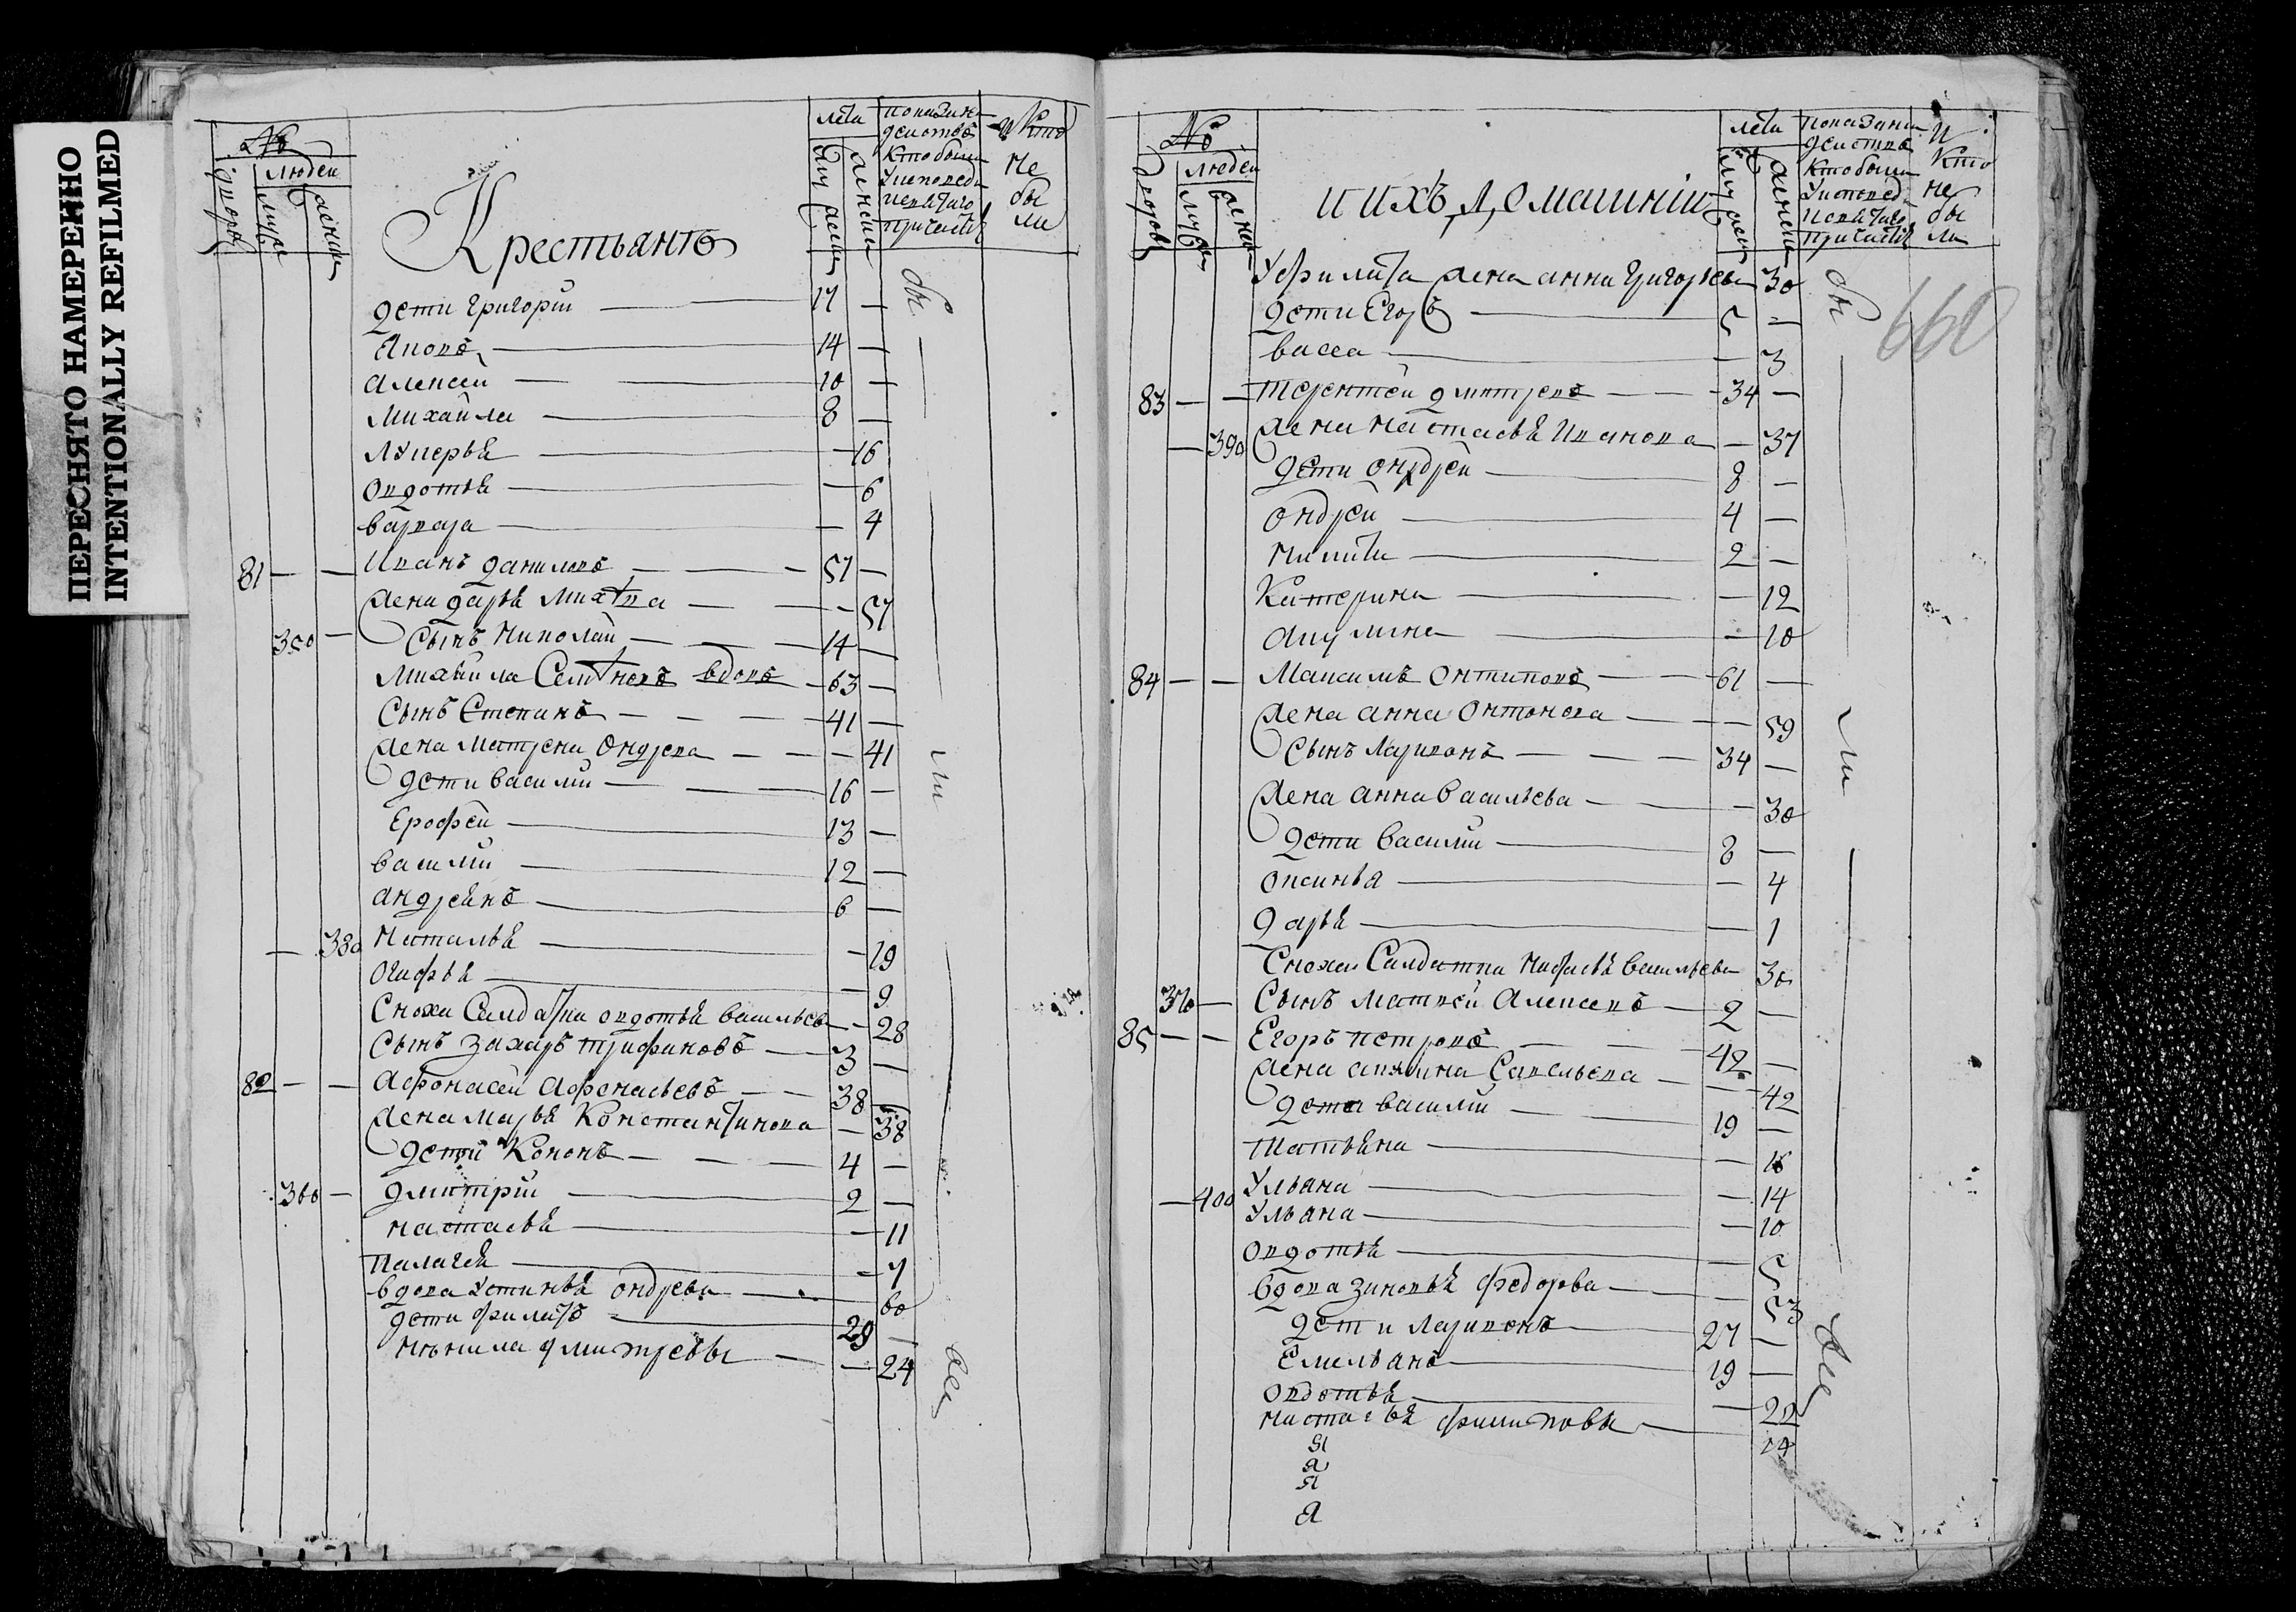 ПЕРЕСНЯТО НАМЕРЕННО
INTENTIONALLY REFILMED
№
людей
дворовъ
мужеска
женска
Крестьянъ
лѣта
мужеска
женска
показание
действа
Кто были
у исповеди
и святаго
причастія
и Кто
не
бы
ли
дети Григории — 17 —
Яковъ — 14 —
Алексеи — 10 —
Михаила — 8 —
Лукерья — 16
Овдотья — 6
Варвара — 4
81 — — Иванъ Даниловъ — 57 —
жена Дарья Михѣева — 57
350 — Сынъ Николаи — 14 —
Михаила Семѣновъ вдовъ — 63 —
Сынъ Степанъ — 41 —
жена Матрена Ондреева — 41
дети Василии — 16 —
Ерофеи — 13 —
Василии — 12 —
Андреянъ — 6 —
— 380 Наталья — 19
Огафья — 9
Сноха Салдатка Овдотья Васильева — 28
Сынъ Захаръ Трифановъ — 3 —
82 — — Афонасеи Афонасьевъ — 38 —
жена Марья Константинова — 38
дети Кононъ — 4 —
360 — Дмитрии — 2 —
Настасья — 11
Палагея — 7
вдова Устинья Ондреева — 60
дети Филатъ — 29 —
Дмитревы — 24
бы
ли
все
№
людей
дворовъ
мужеска
женска
и ихъ домашнии
лѣта
мужеска
женска
показание
действа
Кто были
у исповеди
и святаго
причастія
и
Кто
не
бы
ли
660
У Филата жена Анна Григорьева 30
дети Егоръ — 5 —
Васса — 3
83 — — Терентеи Дмитревъ — 34 —
— 390 жена Настасья Иванова — 37
дети Ондреи — 8 —
Ондреи — 4 —
Никита — 2 —
Катерина — 12
Акулина — 10
84 — — Максимъ Онтиповъ — 61 —
жена Анна Онтонова — 59
Сынъ Ларионъ — 34 —
жена Анна Васильева — 30
дети Василии — 8 —
Оксинья — 4
Дарья — 1
Сноха Салдатка Васильева 30
370 — Сынъ Матвеи Алексеевъ — 2 —
85 — — Егоръ Петровъ — 42 —
жена Савельева — 42
дети Василии — 19 —
Татьяна — 16
Ульяна — 14
— 400 Ульяна — 10
Овдотья — 5
вдова Зиновья Федорова — 53
дети Ларионъ — 27 —
Емельянъ — 19 —
Овдотья — 22
Настасья Филиповы — 14
я
я
я
я
бы
ли
все